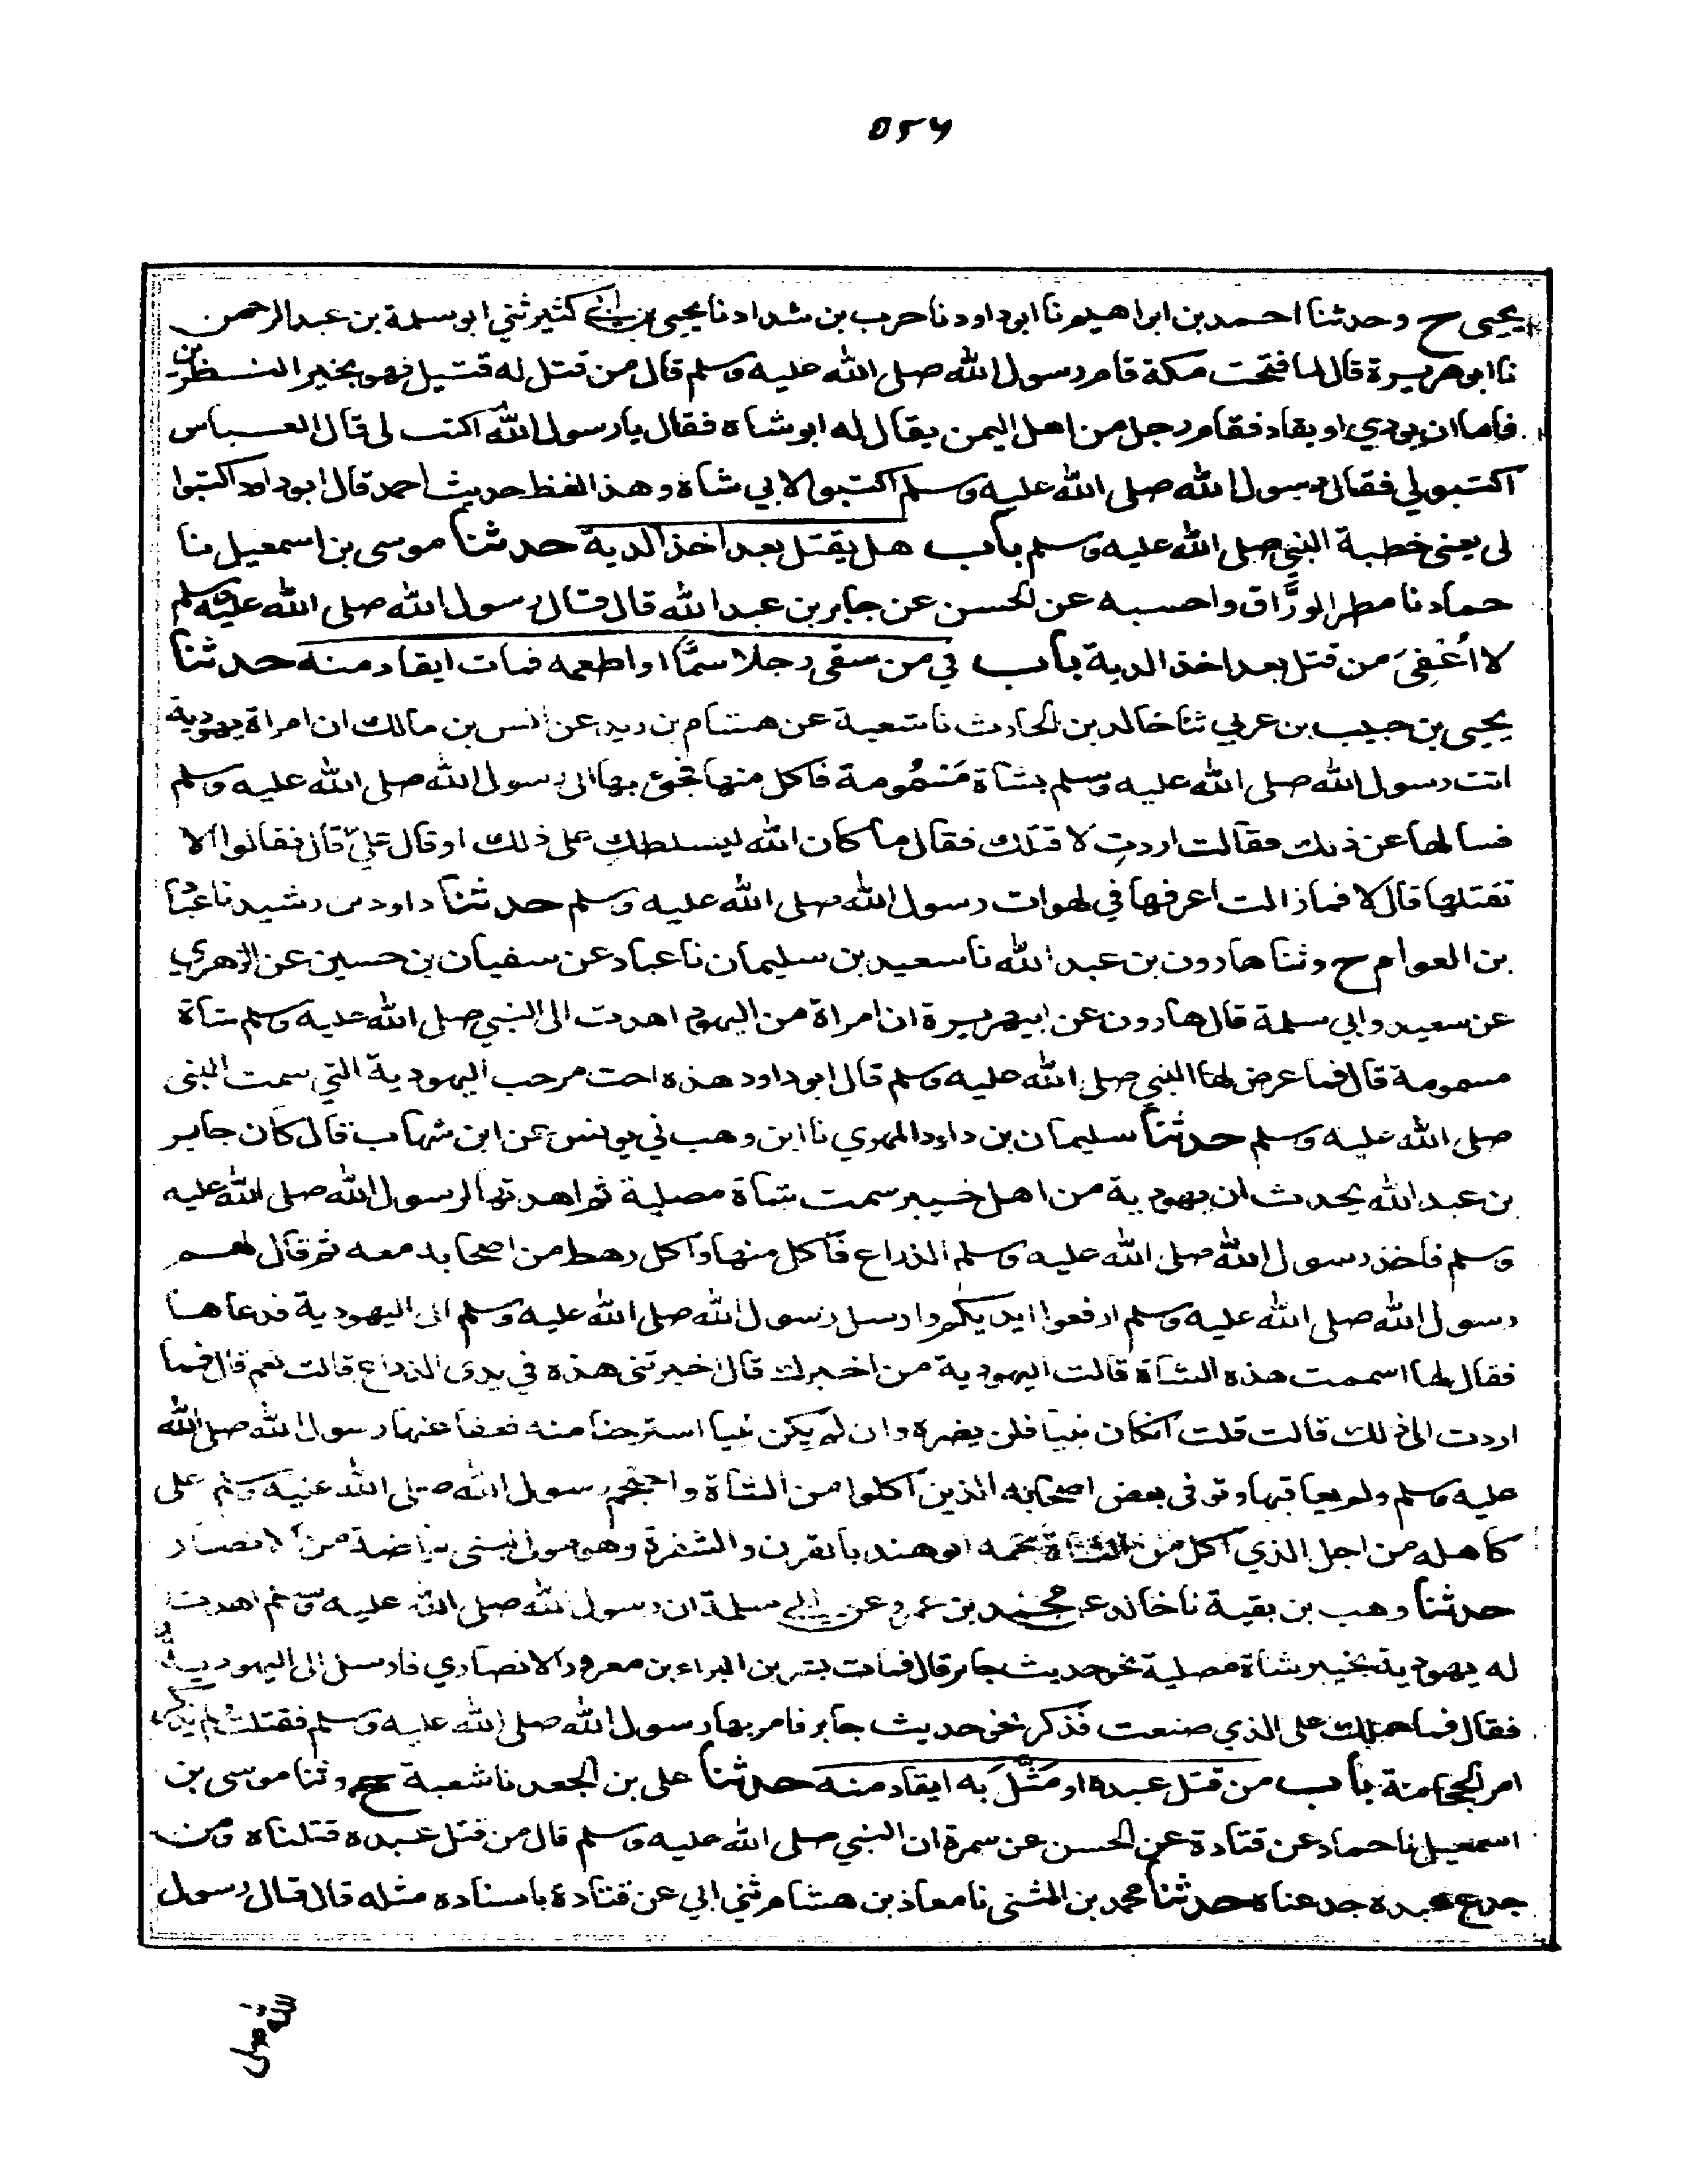 ٥٢٦
يحيى ح وحدثنا احمد بن ابراهيم نا ابو داود نا حرب بن شداد نا يحيى بن ابي كثير ثني ابو سلمة بن عبد الرحمن
نا ابو هريرة قال لما فتحت مكة قام رسول الله صلى الله عليه وسلم قال من قتل له قتيل فهو بخير النظرين
فاما ان يودي او يقاد فقام رجل من اهل اليمن يقال له ابو شاه فقال يا رسول الله اكتب لي قال العباس
اكتبو لي فقال رسول الله صلى الله عليه وسلم اكتبوا لابي شاه وهذا لفظ حديث احمد قال ابو داود اكتبوا
لى يعنى خطبة النبي صلى الله عليه وسلم باب هل يقتل بعد اخذ الدية حدثنا موسى بن اسمعيل نا
حماد نا مطر الورَّاق واحسبه عن الحسن عن جابر بن عبد الله قال قال رسول الله صلى الله عليه وسلم
لا اُعْفِىَ من قتل بعد اخذ الدية باب في من سقى رجلا سمًّا او اطعمه فمات ايقاد منه حدثنا
يحيى بن حبيب بن عربي ثنا خالد بن الحارث نا شعبة عن هشام بن زيد عن انس بن مالك ان امراة يهودية
اتت رسول الله صلى الله عليه وسلم بشاة مَسْمُومة فاكل منها فجئ بها الى رسول الله صلى الله عليه وسلم
فسالها عن ذلك فقالت اردت لاقتلك فقال ما كان الله ليسلطك على ذلك او قال عليّ قال فقالوا الا
تقتلها قال لا فما زالت اعرفها في لهوات رسول الله صلى الله عليه وسلم حدثنا داود بن رشيد نا عباد
بن العوام ح وثنا هارون بن عبد الله نا سعيد بن سليمان نا عباد عن سفيان بن حسين عن الزهري
عن سعيد وابي سلمة قال هارون عن ابي هريرة ان امراة من اليهود اهدت الى النبي صلى الله عليه وسلم شاة
مسمومة قال فما عرض لها النبي صلى الله عليه وسلم قال ابو داود هذه اخت مرحب اليهودية التي سمت النبى
صلى الله عليه وسلم حدثنا سليمان بن داود المهري نا ابن وهب ني يونس عن ابن شهاب قال كان جابر
بن عبد الله يحدث ان يهودية من اهل خيبر سمت شاة مصلية ثم اهدتها لرسول الله صلى الله عليه
وسلم فاخذ رسول الله صلى الله عليه وسلم الذراع فاكل منها واكل رهط من اصحابه معه ثم قال لهم
رسول الله صلى الله عليه وسلم ارفعوا ايديكم وارسل رسول الله صلى الله عليه وسلم الى اليهودية فدعاها
فقال لها اسممت هذه الشاة قالت اليهودية من اخبرك قال اخبرتنى هذه في يدى الذراع قالت نعم قال فما
اردت الى ذلك قالت قلت ان كان نبيا فلن يضره وان لم يكن نبيا استرحنا منه فعفا عنها رسول الله صلى الله
عليه وسلم ولم يعاقبها وتوفى بعض اصحابه الذين اكلوا من الشاة واحتجم رسول الله صلى الله عليه وسلم على
كاهله من اجل الذي اكل من الشاة حجمه ابو هند بالقرن والشفرة وهو مولى لبنى بياضة من الانصار
حدثنا وهب بن بقية نا خالد عن محمد بن عمرو عن ابي سلمة ان رسول الله صلى الله عليه وسلم اهدت
له يهودية بخيبر شاة مصلية نحو حديث جابر قال فمات بشر بن البراء بن معرور الانصاري فارسل الى اليهودية
فقال فما حملك على الذي صنعت فذكر نحو حديث جابر فامر بها رسول الله صلى الله عليه وسلم فقتلت ولم يذكر
امر الحجامة باب من قتل عبده او مَثَّلَ به ايقاد منه حدثنا على بن الجعد نا شعبة ح وثنا موسى بن
اسمعيل نا حماد عن قتادة عن الحسن عن سمرة ان النبي صلى الله عليه وسلم قال من قتل عبده قتلناه ومن
جدع عبده جدعناه حدثنا محمد بن المثنى نا معاذ بن هشام ثني ابي عن قتادة باسناده مثله قال قال رسول
الله صلى